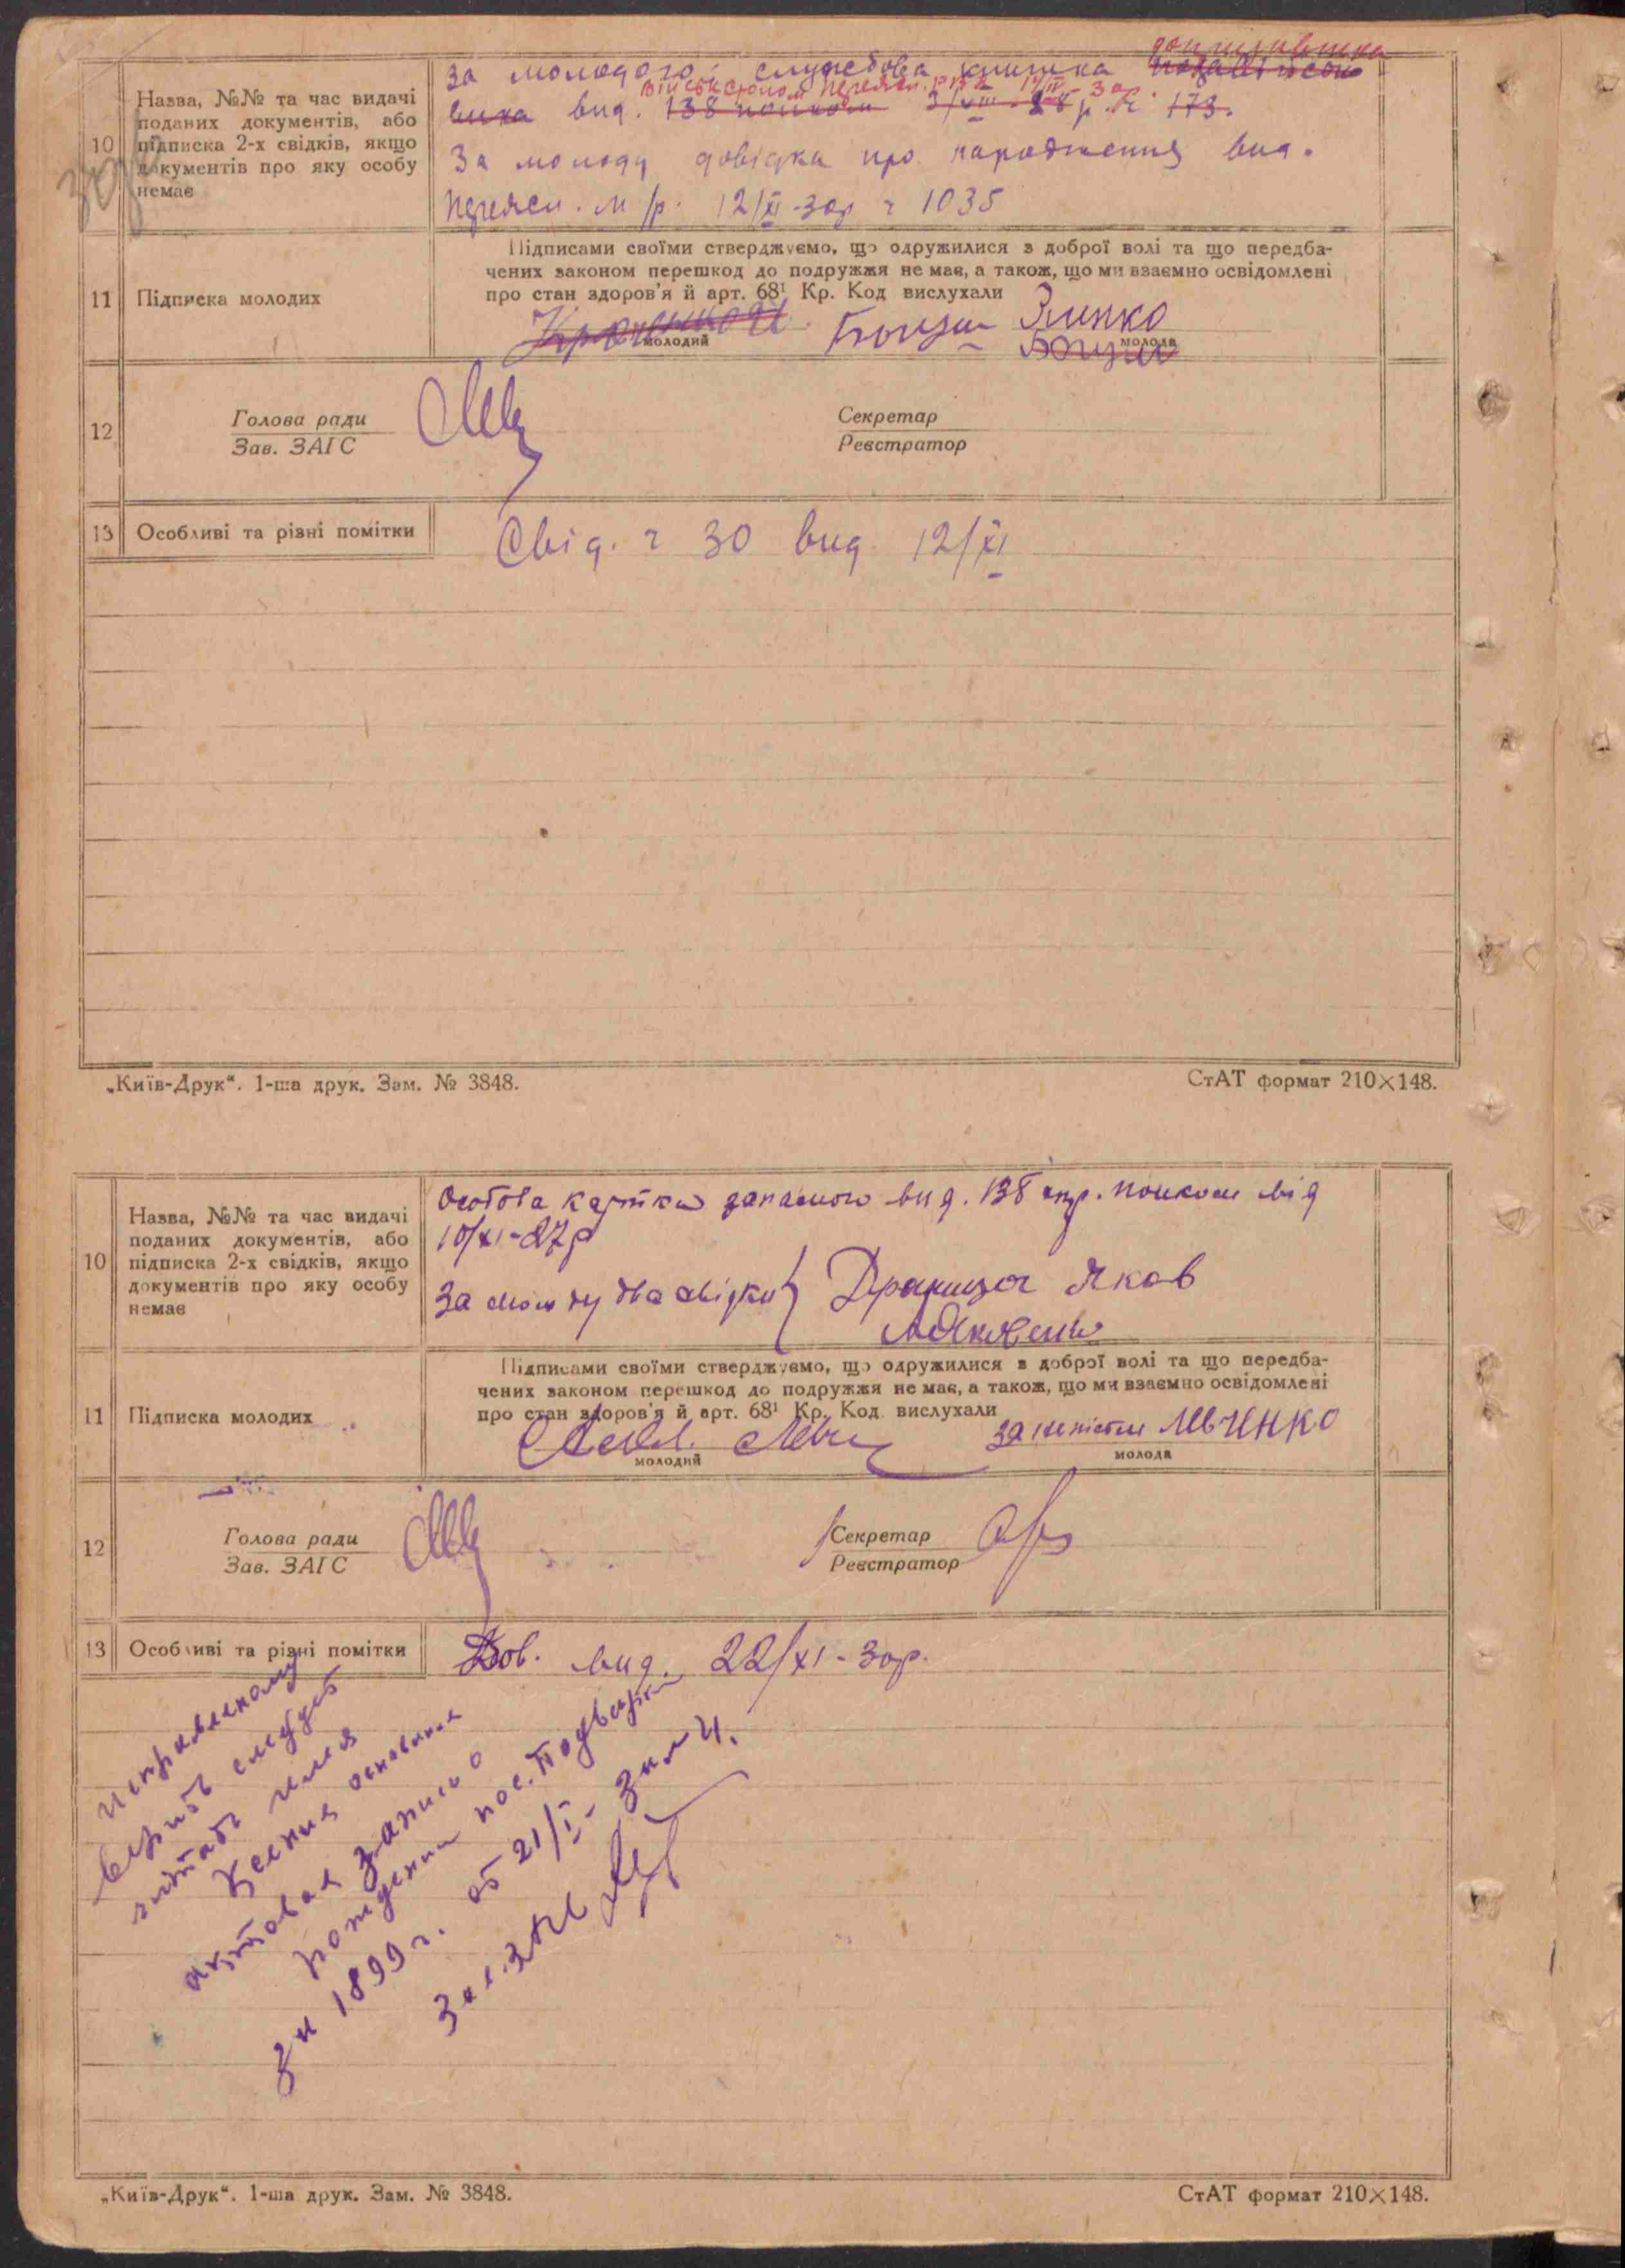 допризивника
10
Назва, №№ та час видачі
поданих документів, або
підписка 2-х свідків, якщо
документів про яку особу
немає
За молодого службова книжка
військстолом Переясл.
вика вид. 138 полком 28 р. № 173.
За молоду довідка про народження вид.
Переясл. м/р. 12/XI-30р ч 1035
11
Підписка молодих
Підписами своїми стверджуємо, що одружилися з доброї волі та що передба-
чених законом перешкод до подружжя не має, а також, що ми взаємно освідомлені
про стан здоров'я й арт. 68¹ Кр. Код вислухали
молодий
молода
12
Голова ради
Зав. ЗАГС
Секретар
Реєстратор
13
Особливі та різні помітки
Свід. ч 30 вид. 12/XI
„Київ-Друк“. 1-ша друк. Зам. № 3848.
СтАТ формат 210×148.
10
Назва, №№ та час видачі
поданих документів, або
підписка 2-х свідків, якщо
документів про яку особу
немає
Особова картка запасного вид. 138 полком від
10/XI-27р
За молоду два свідки Яков
11
Підписка молодих
Підписами своїми стверджуємо, що одружилися з доброї волі та що передба-
чених законом перешкод до подружжя не має, а також, що ми взаємно освідомлені
про стан здоров'я й арт. 68¹ Кр. Код вислухали
молодий
молода
12
Голова ради
Зав. ЗАГС
Секретар
Реєстратор
13
Особливі та різні помітки
Дов. вид. 22/XI-30р.
исправленому
верить следует
читать имя
Ксения основания
актовая запись о
рождении
за 1899 г. от 21/I-
Зав. ЗАГС
„Київ-Друк“. 1-ша друк. Зам. № 3848.
СтАТ формат 210×148.